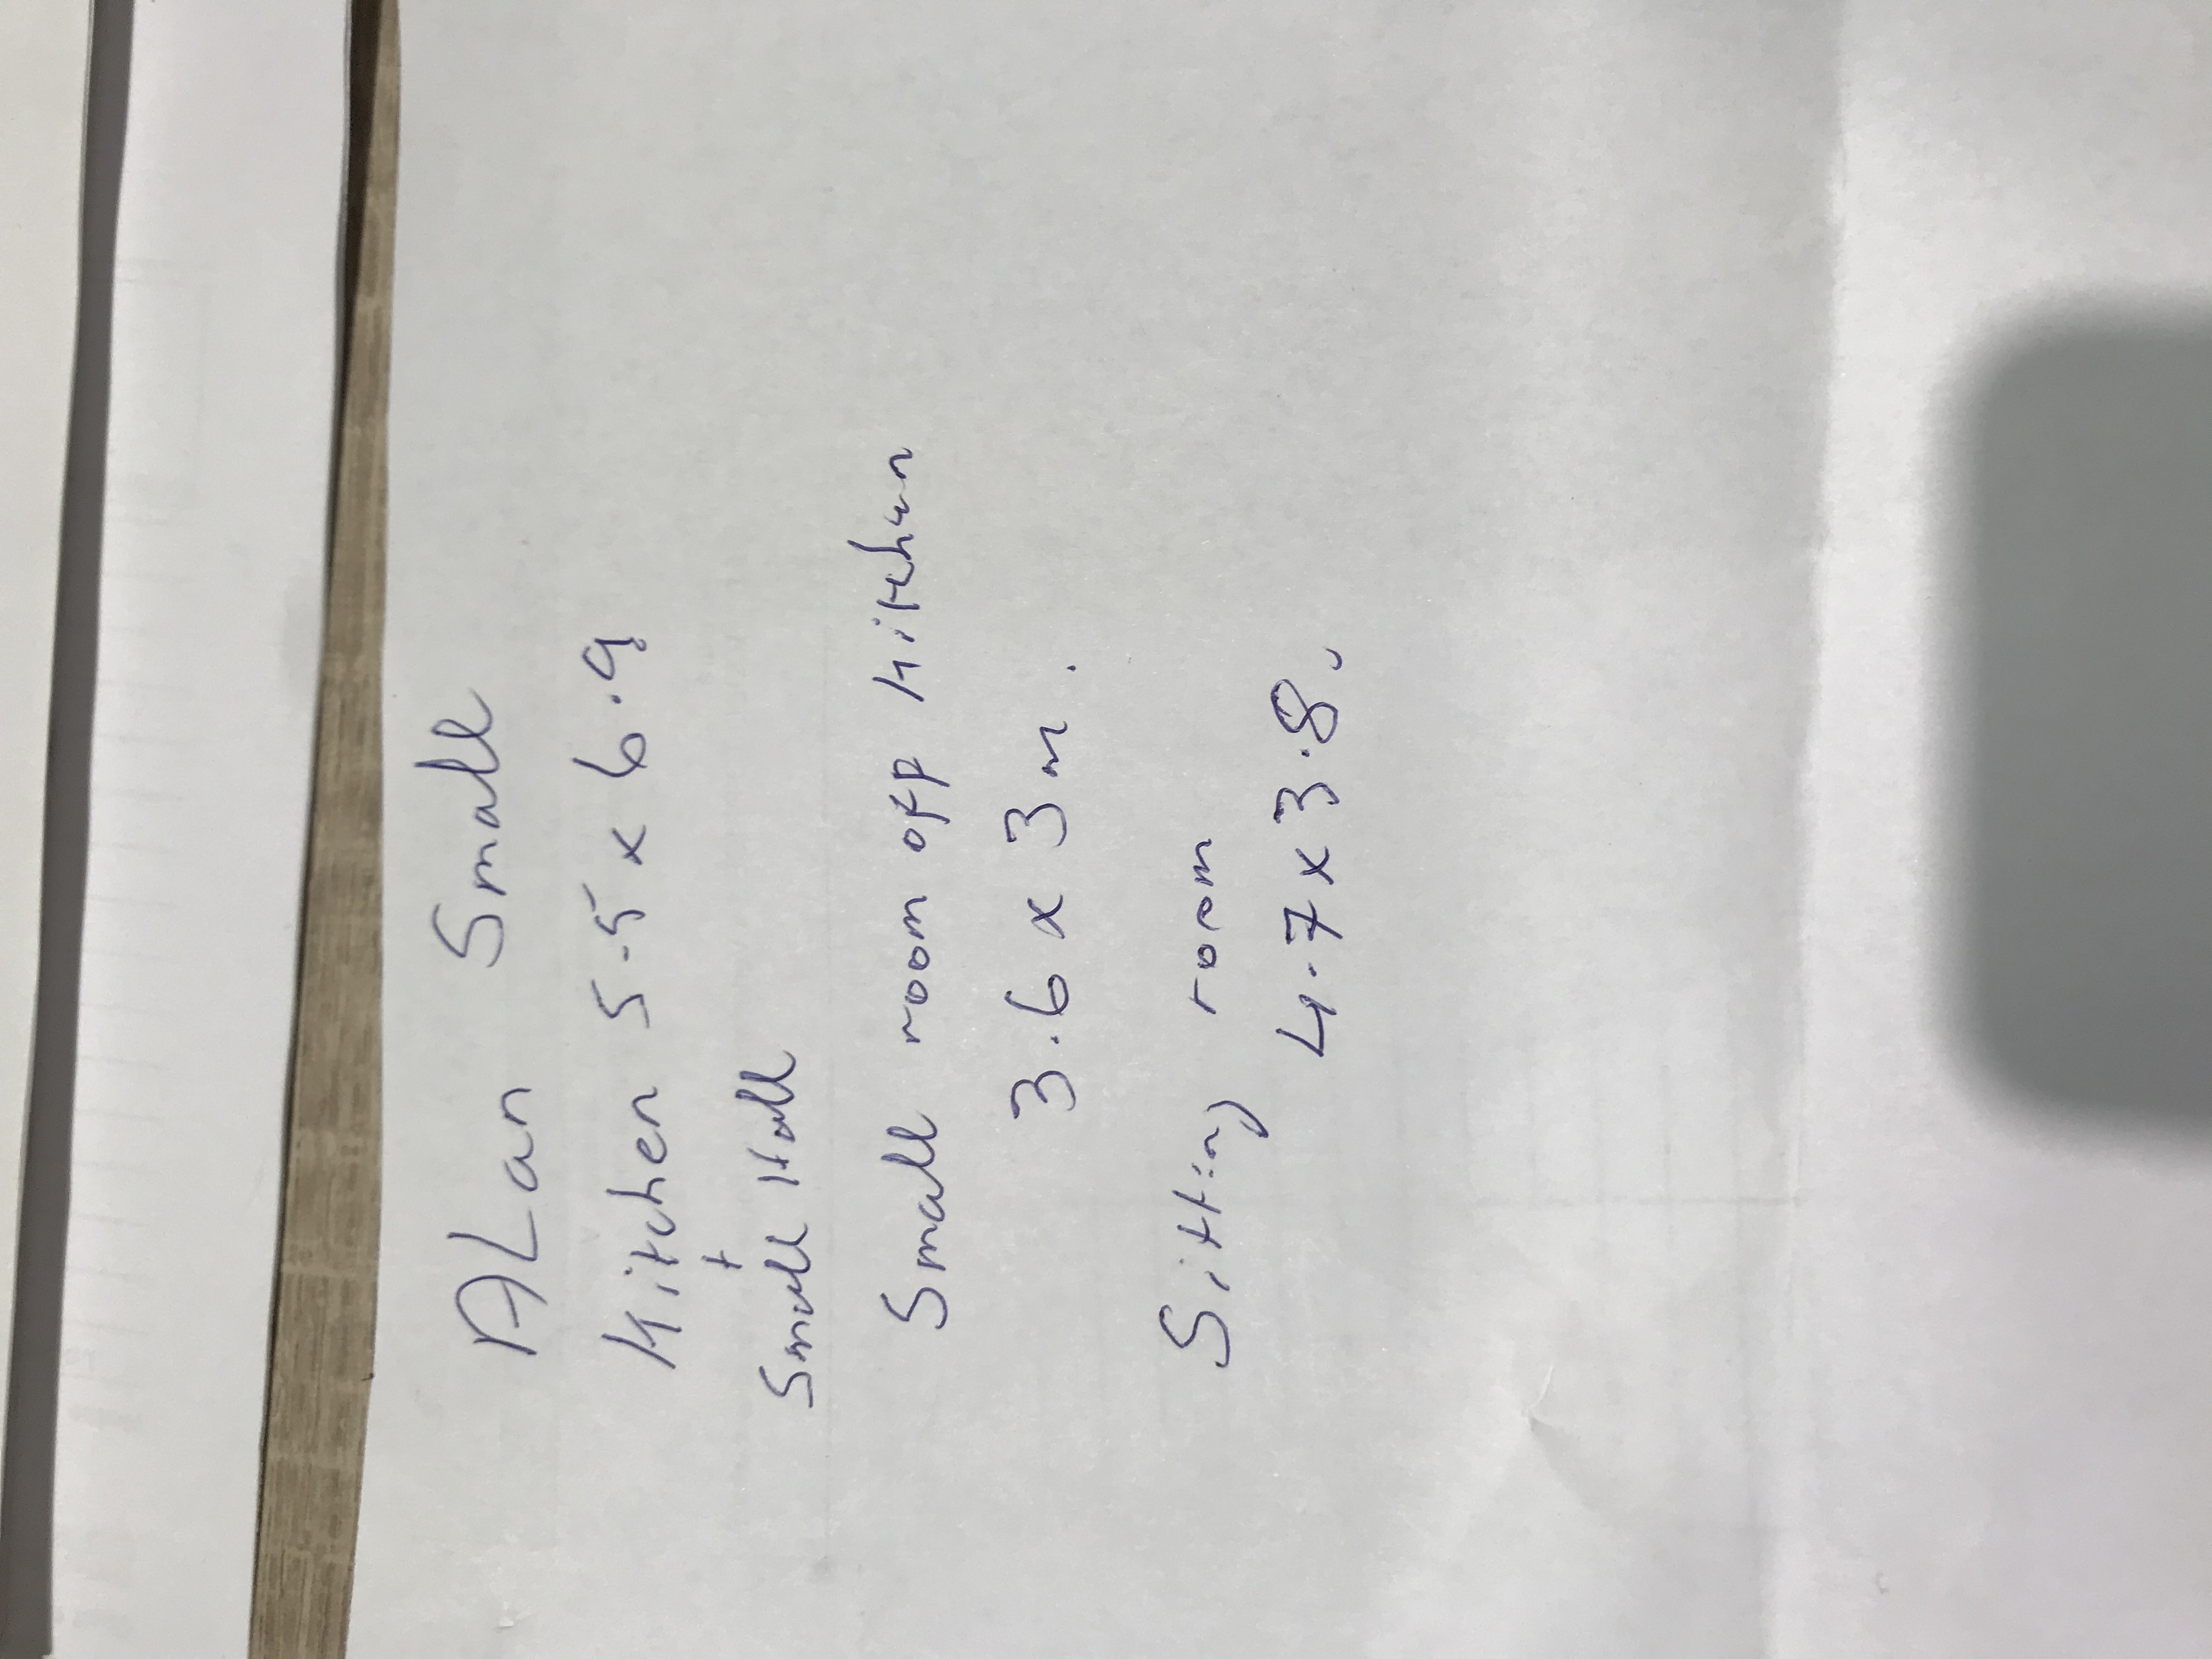 ALan Small
Kitchen 5.5 x 6.9
+
Small Hall
Small room off kitchen
3.6 x 3m.
Sitting room
4.7 x 3.8.